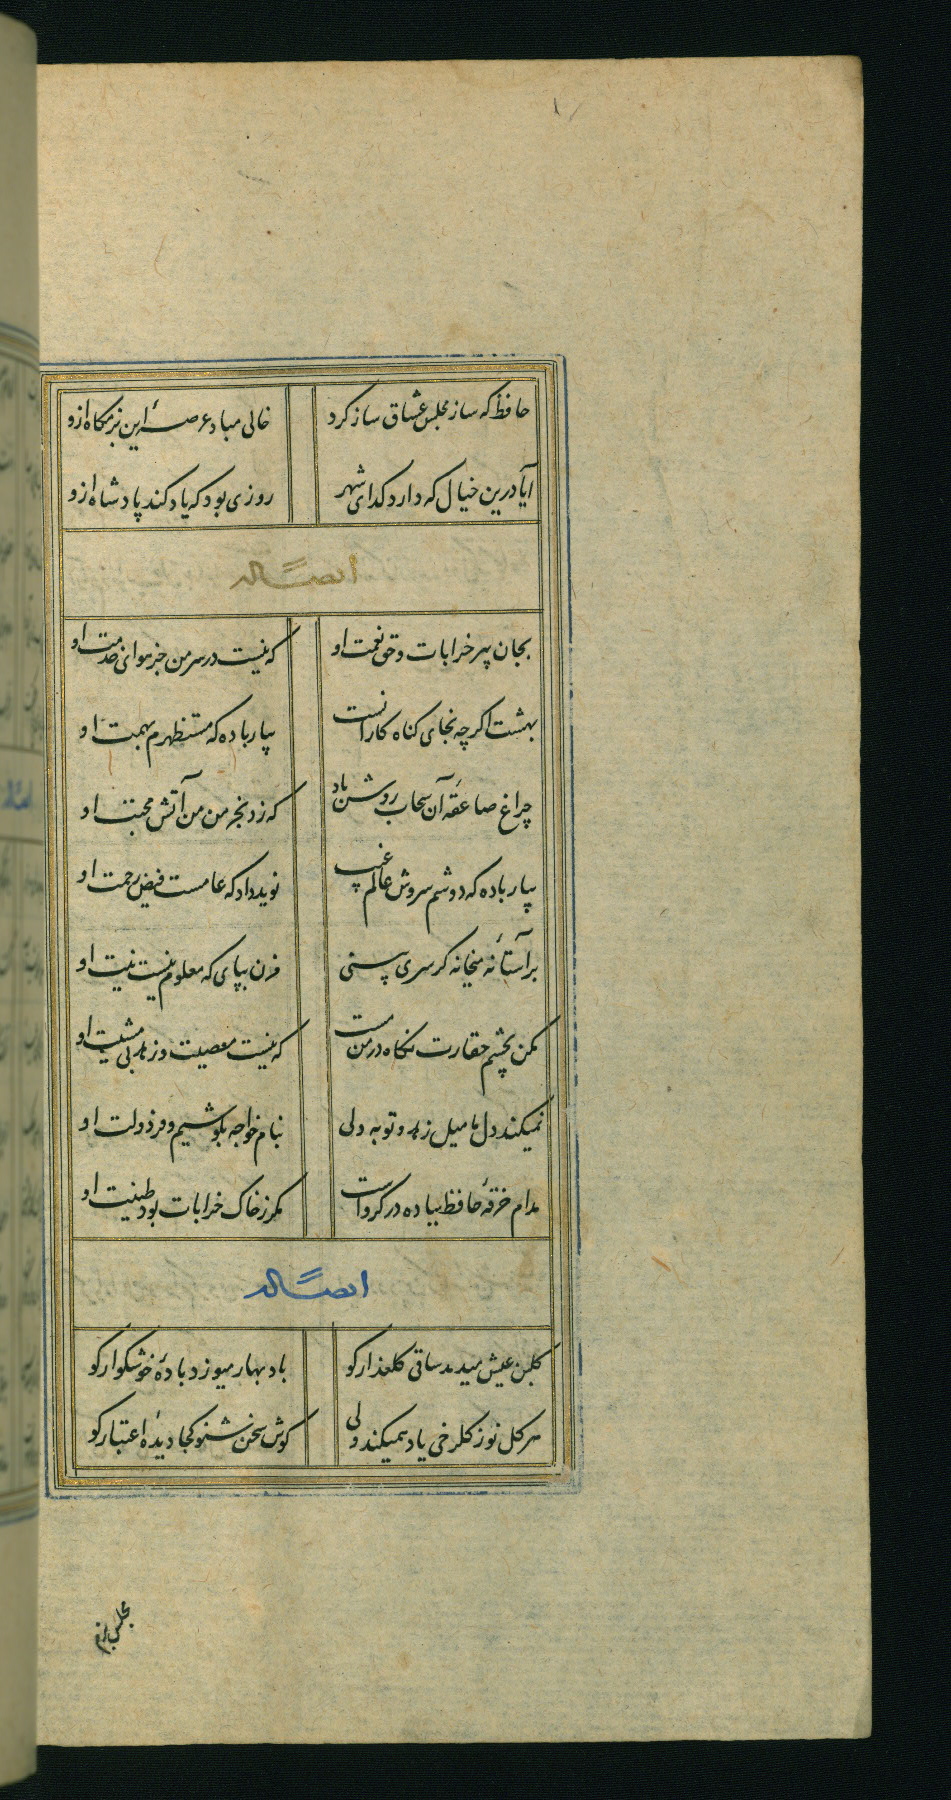 حافظ که ساز مجلس عشاق ساز کرد خالی مباد عرصهٔ این بزمکاه ازو
آیا درین خیال که دارد کدای شهر روزی بود که یاد کند پادشاه ازو
ایضاً له
بجان پیر خرابات و حق نعمت او که نیست در سر من جز هوای خدمت او
بهشت اکرچه نجای کناه کارانست بیار باده که مستظهرم بهمت او
چراغ صاعقهٔ آن سحاب روشن باد که زد بخرمن من آتش محبت او
بیار باده که دوشم سروش عالم غیب نوید داد که عامست فیض رحمت او
بر آستانهٔ میخانه کر سری بینی مزن بپای که معلوم نیست نیت او
مکن بچشم حقارت نکاه در من مست که نیست معصیت و زهد بی مشیت او
نمیکند دل ما میل زهد و توبه ولی بنام خواجه بکوشیم و فر دولت او
مدام خرقهٔ حافظ بباده در کرو است مکر ز خاک خرابات بود طینت او
ایضاً له
کلبن عیش میدمد ساقی کلعذار کو باد بهار میوزد بادهٔ خوشکوار کو
هر کل نو ز کلرخی یاد همیکند ولی کوش سخن شنو کجا دیدهٔ اعتبار کو
مجلس بزم